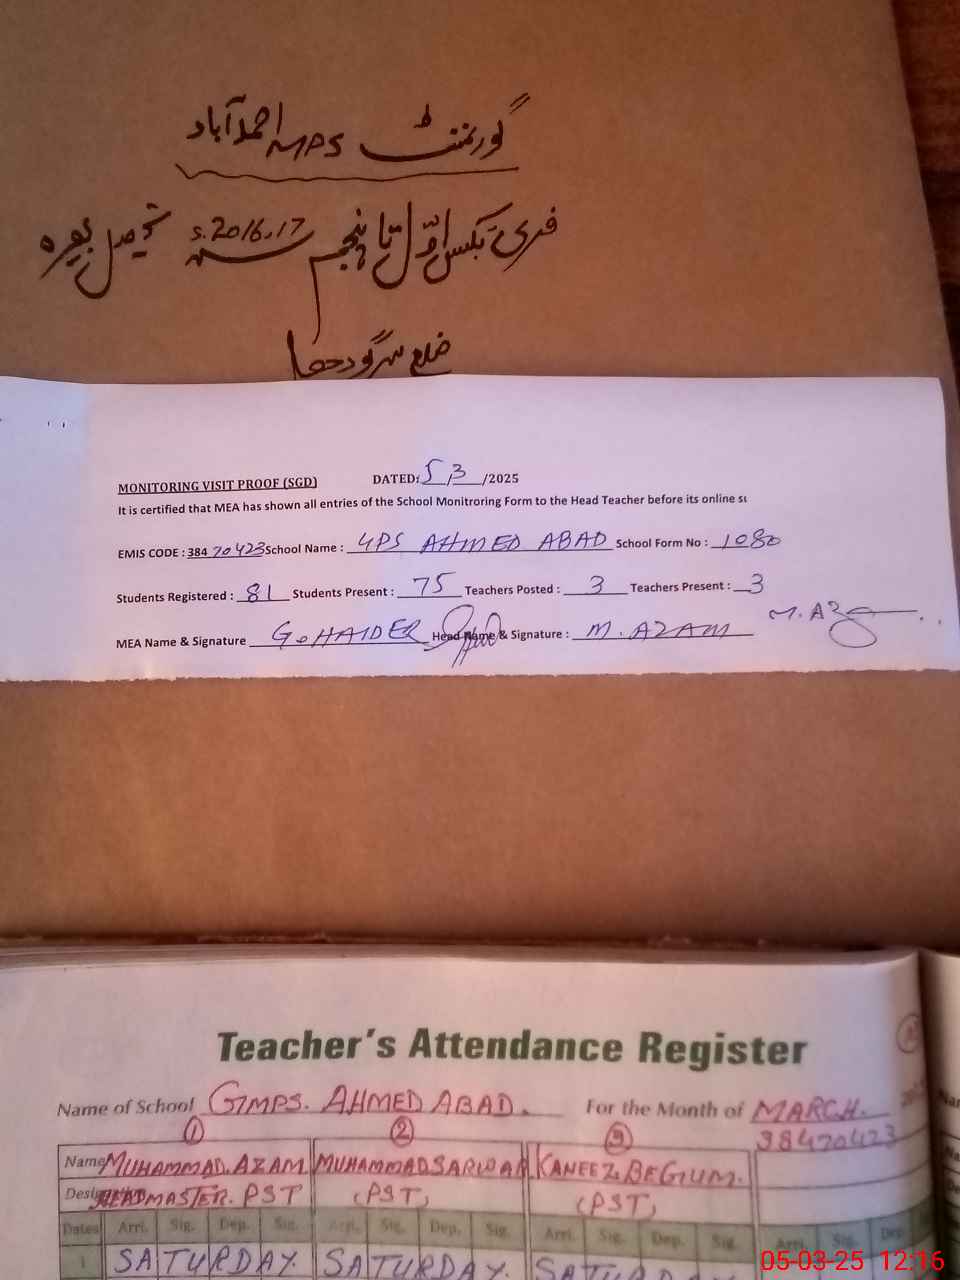 گورنمنٹ MPS احمدآباد
فری بکس اوّل تا پنجم s.2016.17 تحصیل بھیرہ
ضلع سرگودھا
MONITORING VISIT PROOF (SGD) DATED: 5/3/2025
It is certified that MEA has shown all entries of the School Monitroring Form to the Head Teacher before its online su
EMIS CODE : 384 70423 School Name : MPS AHMED ABAD School Form No : 1080
Students Registered : 81 Students Present : 75 Teachers Posted : 3 Teachers Present : 3
MEA Name & Signature G.HAIDER Head Name & Signature : M.AZAM M.Az
Teacher's Attendance Register
Name of School GMPS. AHMED ABAD. For the Month of MARCH.
38470423
① ② ③
Name MUHAMMAD.AZAM MUHAMMAD SARWAR KANEEZ BEGUM.
HEADMASTER. PST (PST) (PST)
Dates Arri. Sig. Dep. Sig. Arri. Sig. Dep. Sig. Arri. Sig. Dep. Sig. Arri. Sig. Dep.
1 SATURDAY. SATURDAY. SATURDAY
05-03-25 12:16